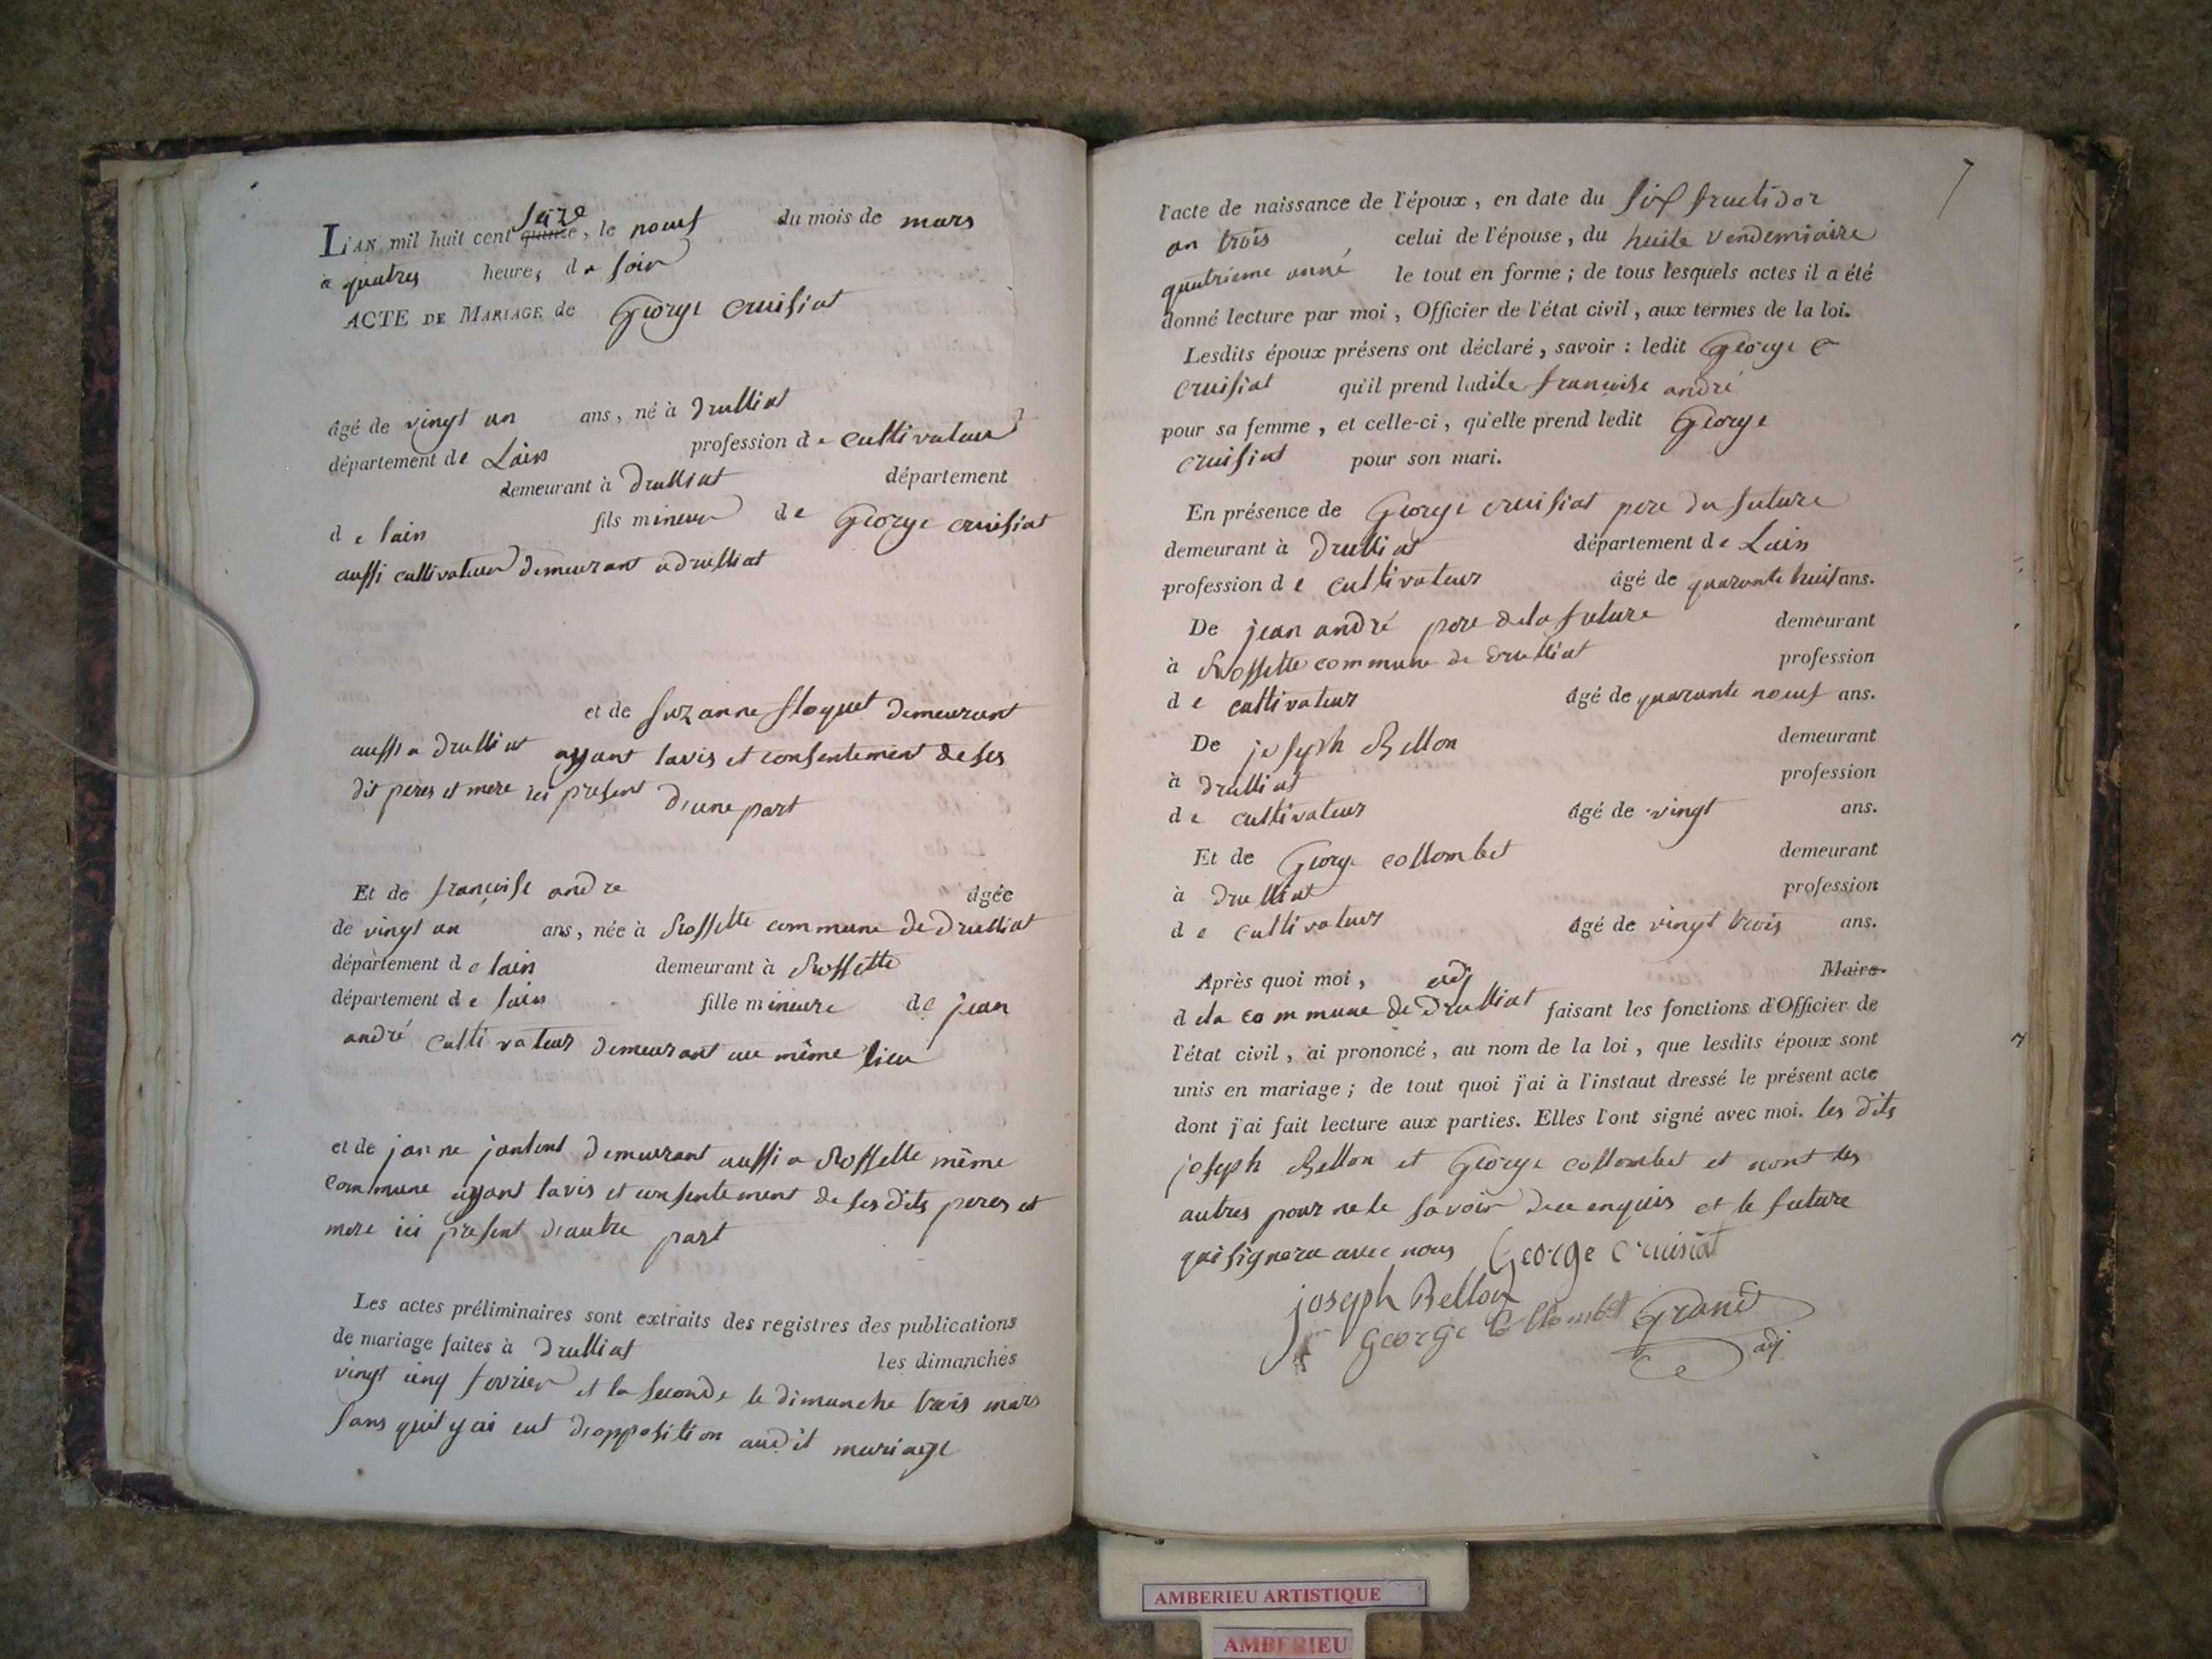 L'AN mil huit cent quinze seize, le noeuf du mois de mars
à quatres heures du soir
ACTE DE MARIAGE de George Cruisiat
âgé de vingt un ans, né à Drulliat
département de Lain profession de cultivateur
demeurant à Drulliat département
de lain fils mineur de George cruisiat
aussi cultivateur demeurant a drulliat
et de suzanne floquet demeurant
aussi a Drulliat ayant lavis et consentement de ses
dit peres et mere ici present d'une part
Et de françoise andre âgée
de vingt un ans, née à Rossette commune de Drulliat
département de lain demeurant à Rossette
département de lain fille mineure de jean
andré cultivateur demeurant au même lieu
et de janne demeurant aussi a Rossette même
commune ayant lavis et consentement de ses dits peres et
mere ici present d'autre part
Les actes préliminaires sont extraits des registres des publications
de mariage faites à Drulliat les dimanches
vingt cinq fevrier et la seconde le dimanche trois mars
sans quil y ai eut d'opposition audit mariage
7
l'acte de naissance de l'époux, en date du six fructidor
an trois celui de l'épouse, du huite vendemiaire
quatrieme anné le tout en forme; de tous lesquels actes il a été
donné lecture par moi, Officier de l'état civil, aux termes de la loi.
Lesdits époux présens ont déclaré, savoir : ledit George C
cruisiat qu'il prend ladite francoise andré
pour sa femme, et celle-ci, qu'elle prend ledit George
cruisiat pour son mari.
En présence de George cruisiat pere du future
demeurant à Drulliat département de Lain
profession de cultivateur âgé de quarante huit ans.
De jean andré pere dela future demeurant
à Rossette commune de drulliat profession
de cultivateur âgé de quarante noeuf ans.
De joseph Bellon demeurant
à drulliat profession
de cultivateur âgé de vingt ans.
Et de George collombet demeurant
à drulliat profession
de cultivateur âgé de vingt trois ans.
Après quoi moi, adj Maire
dela commune de Drulliat faisant les fonctions d'Officier de
l'état civil, ai prononcé, au nom de la loi, que lesdits époux sont
unis en mariage; de tout quoi j'ai à l'instaut dressé le présent acte
dont j'ai fait lecture aux parties. Elles l'ont signé avec moi. les dits
joseph Bellon et George collombet et nont les
autres pour ne le savoir de ce enquis et le future
qui signera avec nous George Cruisiat
joseph Bellon
George Collombet Grand
adj
AMBERIEU ARTISTIQUE
AMBERIEU